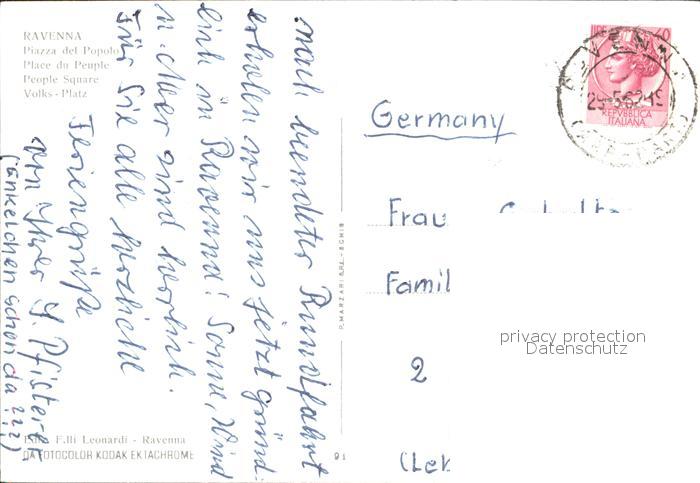 RAVENNA
Piazza del Popolo
Place du Peuple
People Square
Volks - Platz
Nach beendeter Rundfahrt
erholen wir uns jetzt gründ-
lich in Ravenna! Sonne, Wind
u. Meer sind herrlich.
Für Sie alle herzliche
Feriengrüße
von Ihrer
(Enkelchen schon da???)
F.lli Leonardi - Ravenna
DA FOTOCOLOR KODAK EKTACHROME
P. MARZARI S.R.L. - SCHIO
LIRE 40
REPVBBLICA
ITALIANA
Germany
Frau
Famil
2
privacy protection
Datenschutz